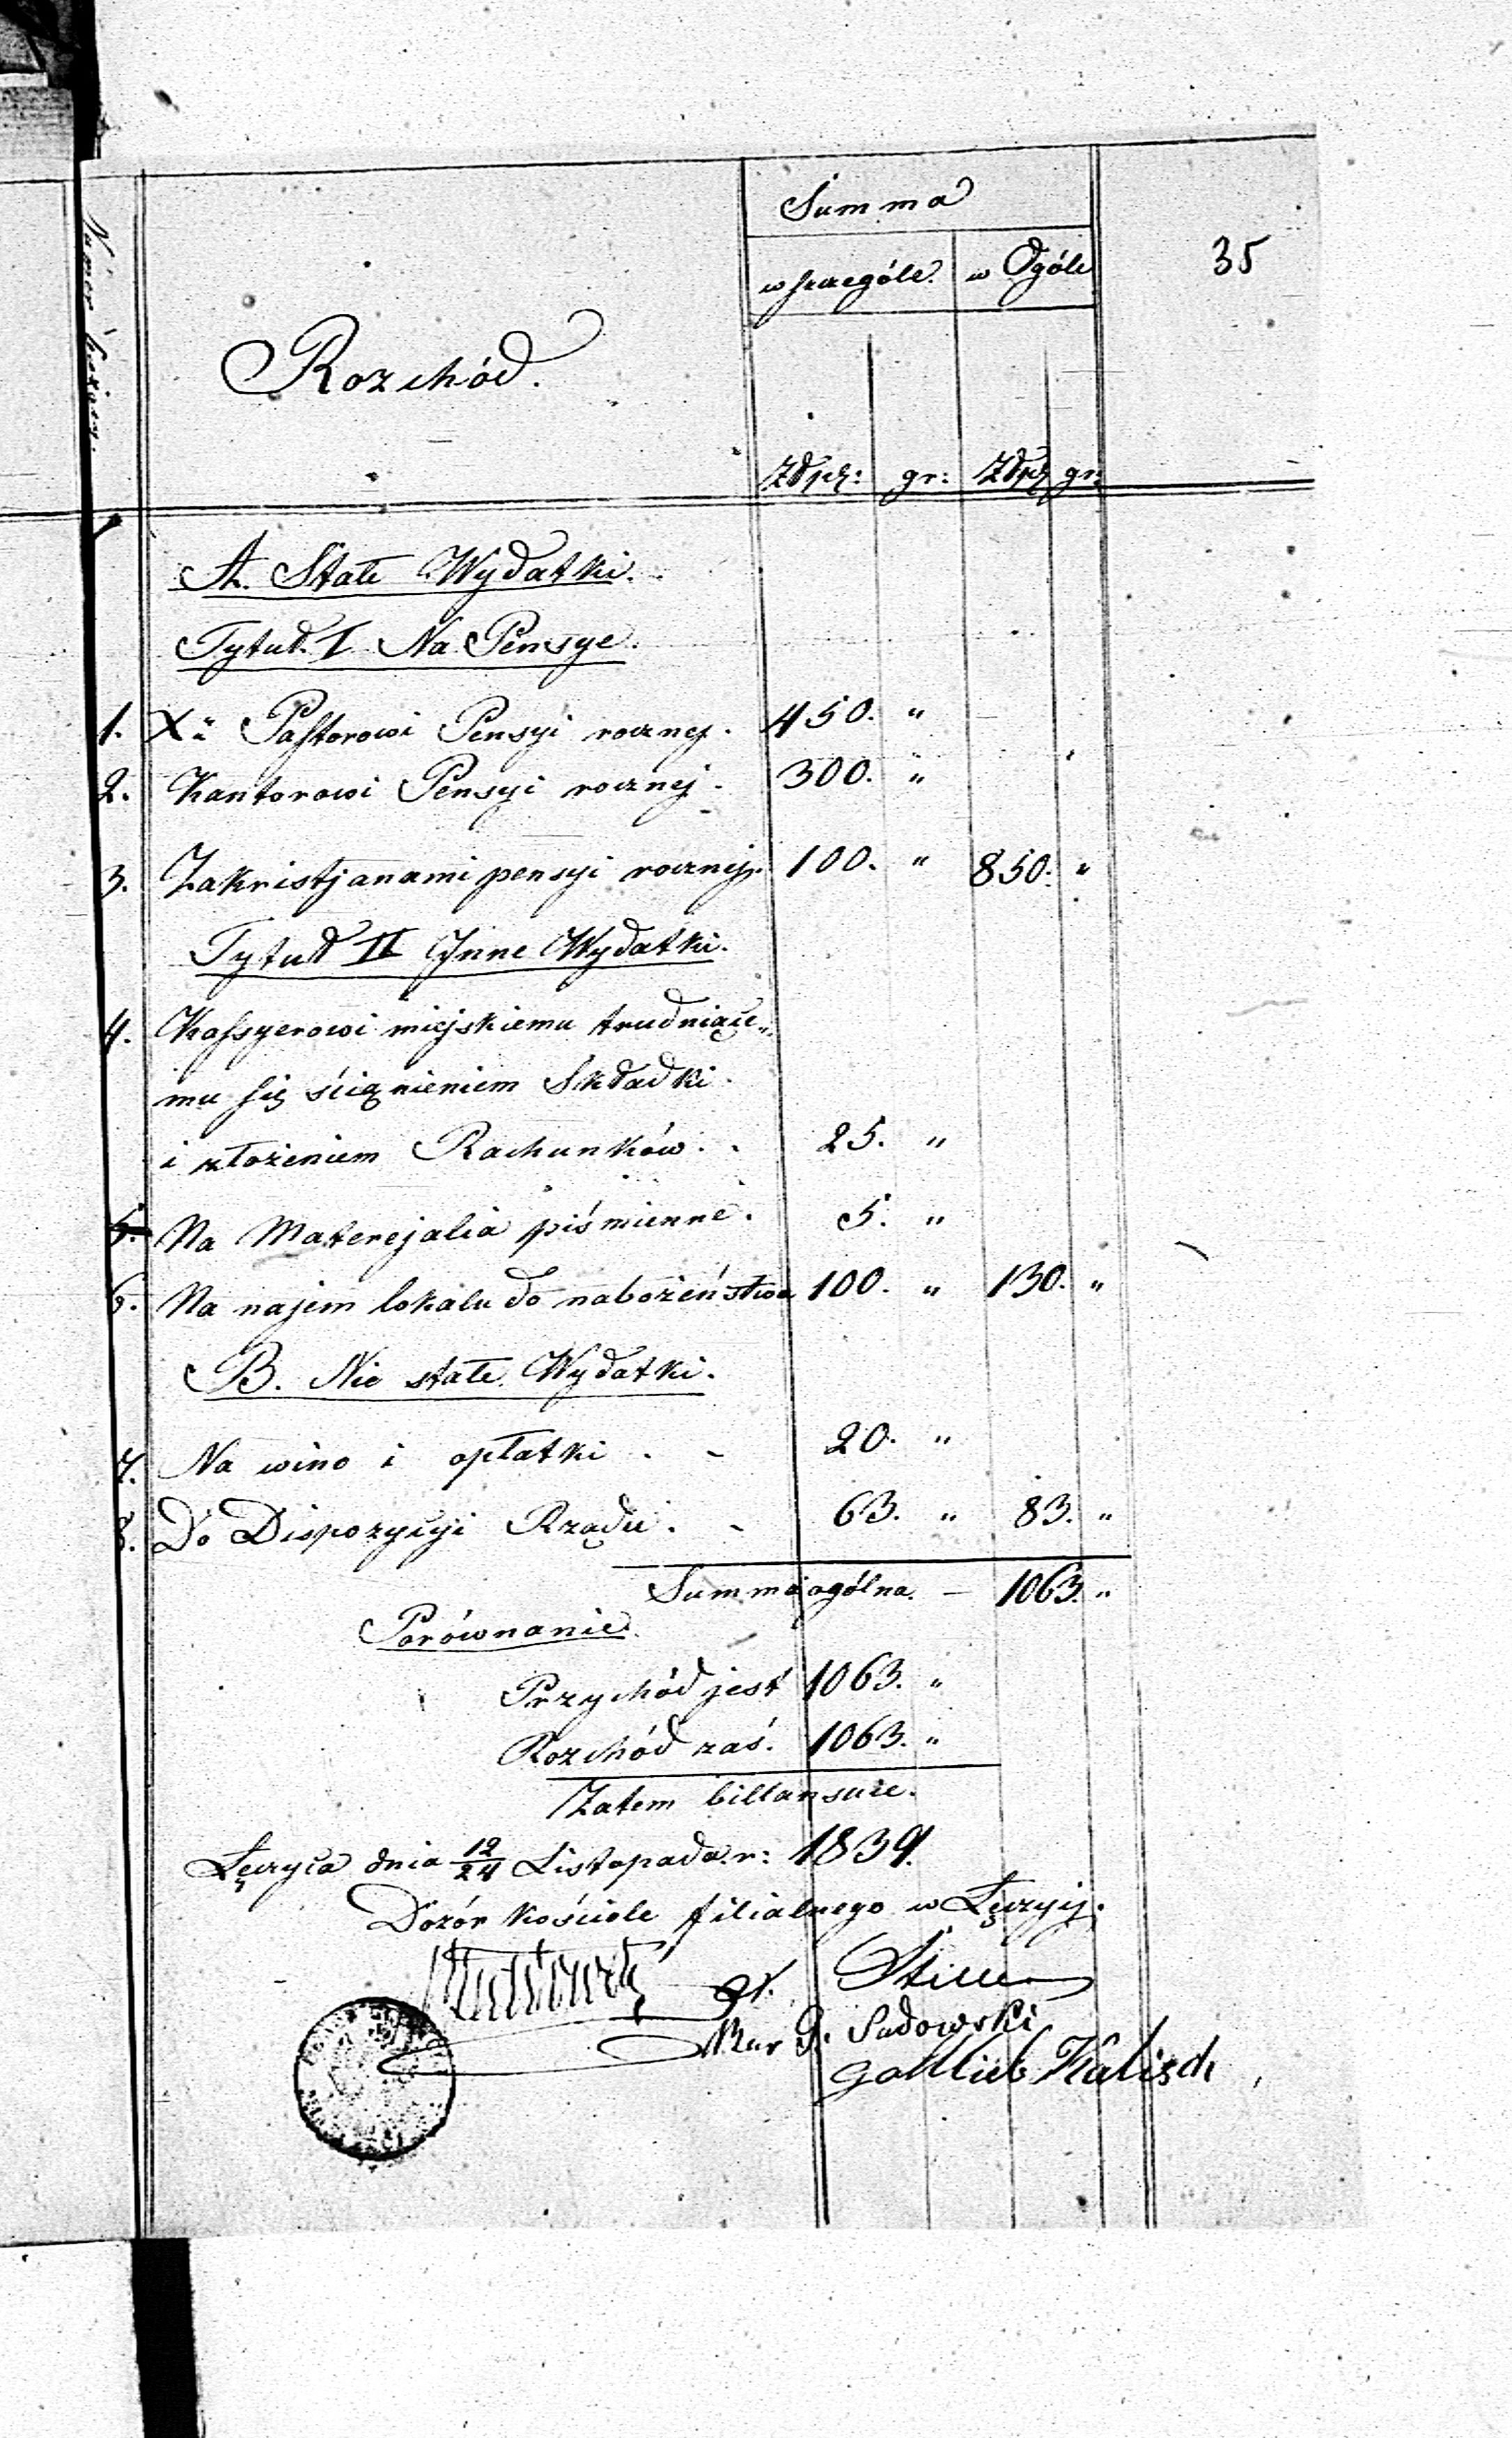 Summa
w szczególe. w Ogóle
35
Numer bieżący.
Rozchód.
Złpol: gr: Złpol gr:
A. Stałe Wydatki.
Tytuł I. Na Pensye.
1. Xu Pastorowi Pensyi rocznej. 450. "
2. Kantorowi Pensyi rocznej. 300. "
3. Zakristjanami pensyi rocznej. 100. " 850. "
Tytuł II Jnne Wydatki.
4. Kassyerowi miejskiemu trudniące„
mu się ściągnieniem Składki
i złożeniem Rachunków. . 25. "
5. Na Materejalia piśmienne. 5. "
6. Na najem lokalu do nabożeństwa 100. " 130. "
B. Nie stałe Wydatki.
7. Na wino i opłatki . - 20. "
8. Do Dispozycyi Rządu. - 63. " 83. "
Summa ogólna. — 1063. "
Porównanie
Przychód jest 1063. "
Rozchód zaś. 1063. "
Zatem billansuie.
Łęczyca dnia 12/24 Listopada r: 1839.
Dozór kościoła filialnego w Łęczycy.
Sadowski
Gottlieb Kalisch